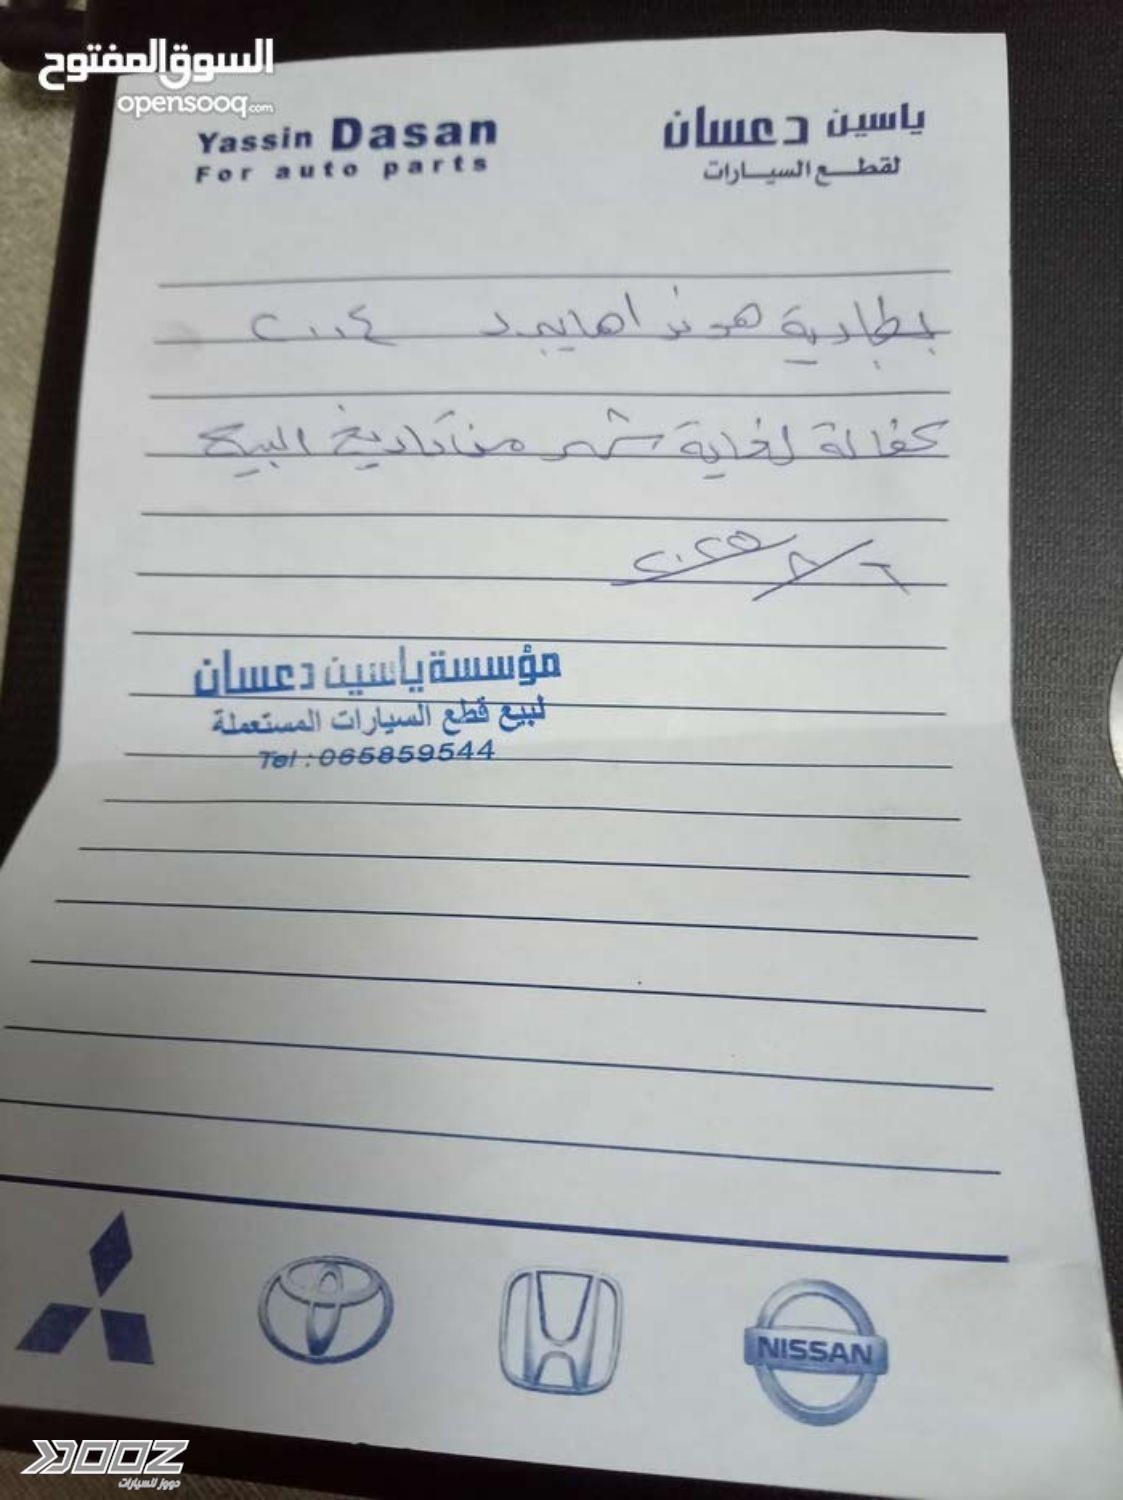 السوق المفتوح
opensooq.com
Yassin Dasan
For auto parts
ياسين دعسان
لقطع السيارات
بطارية هوندا هايبرد ٢٠٠٤
كفالة لغاية شهر من تاريخ البيع
٢٠٢٥/٨/٦
مؤسسة ياسين دعسان
لبيع قطع السيارات المستعملة
Tel : 065859544
NISSAN
دووز للسيارات